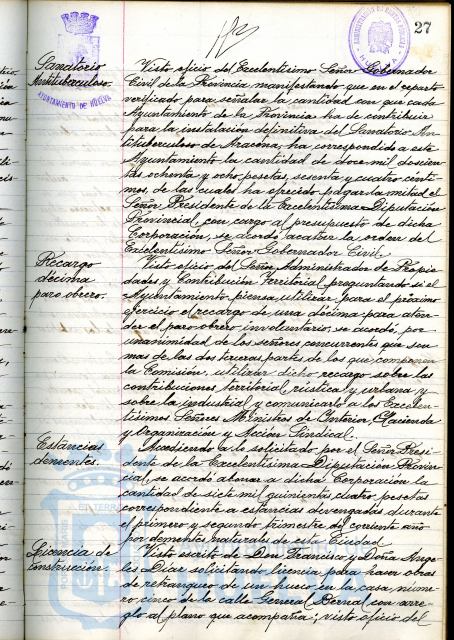 27
AYUNTAMIENTO DE HUELVA
Sanatorio
Antituberculoso.
Visto oficio del Excelentísimo Señor Gobernador
Civil de la Provincia manifestando que en el reparto
verificado para señalar la cantidad con que cada
Ayuntamiento de la Provincia ha de contribuir
para la instalación definitiva del Sanatorio An-
tituberculoso de Aracena, ha correspondido a este
Ayuntamiento la cantidad de doce mil doscien-
tas ochenta y ocho pesetas, sesenta y cuatro cénti-
mos, de las cuales ha ofrecido pagar la mitad el
Señor Presidente de la Excelentísima Diputación
Provincial con cargo al presupuesto de dicha
Corporación, se acordó acatar la orden del
Excelentísimo Señor Gobernador Civil.
Recargo
décima
paro obrero.
Visto oficio del Señor Administrador de Propie-
dades y Contribución Territorial preguntando si el
Ayuntamiento piensa utilizar para el próximo
ejercicio el recargo de una décima para aten-
der el paro obrero involuntario, se acordó, por
unanimidad de los señores concurrentes que son
mas de las dos terceras partes de los que componen
la Comisión, utilizar dicho recargo sobre las
contribuciones territorial, rústica y urbana, y
sobre la industrial y comunicarlo a los Excelen-
tísimos Señores Ministros de Interior, Hacienda
y Organización y Acción Sindical.
Estancias
dementes.
Accediendo a lo solicitado por el Señor Presi-
dente de la Excelentísima Diputación Provin-
cial, se acordó abonar a dicha Corporación la
cantidad de siete mil quinientas cuatro pesetas
correspondiente a estancias devengadas durante
el primero y segundo trimestre del corriente año
por dementes naturales de esta Ciudad.
Licencia de
construcción.
Visto escrito de Don Francisco y Doña Ange-
les Diaz solicitando licencia para hacer obras
de retranqueo de un hueco en la casa núme-
ro cinco de la calle General Bernal con arre-
glo al plano que acompaña; visto oficio del